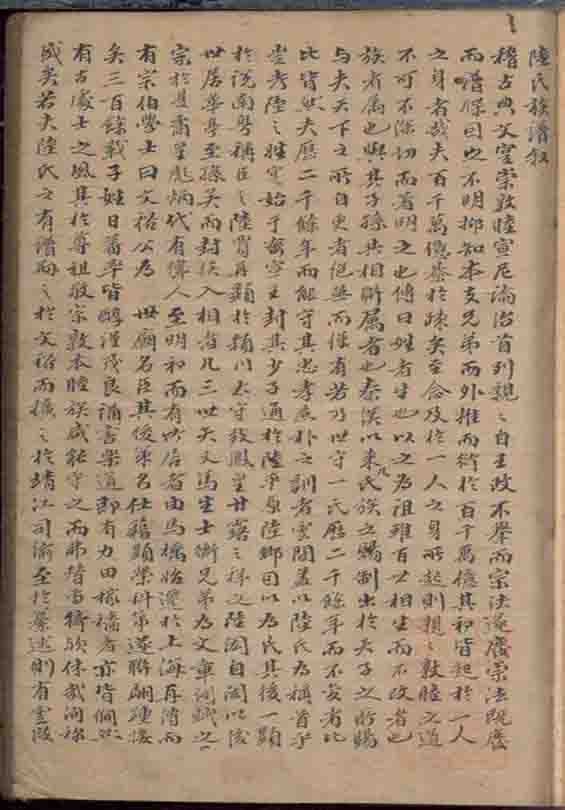 陸氏族譜敘
稽古典文實崇敦睦宣尼論治首列親〻自王政不舉而宗法遂廢宗法既廢
而譜牒因之不明抑知本支兄弟而外推而衍於百千萬億其初皆起於一人
之身者哉夫百千萬億蓁於疎矣至念及於一人之身所起則親〻敦睦之道
不可不深切而著明之也傳曰姓者生也以之為祖雖百世相生而不改者也
族者屬也與其子孫共相聯屬者也秦漢以來凡氏族之賜制出於天子之所賜
与夫天下之所自更者紀無而僅有若乃世守一氏歷二千餘年而不変者比
比皆然夫歷二千餘年而能守其忠孝志朴之訓者雲間盖以陸氏為稱首乎
嘗考陸之姓實始于齊宣王封其少子通於陸鄉平原陸鄉因以為氏其後一顯
於說南粤稱臣之陸賈再顯於潁川太守致鳳皇甘露之祥之陸閎自閎以後
世居華亭至孫吳而封侯入相者凡三世矣又為生士衡兄弟為文章詞賦之
宗於是肅星彪炳代有偉人至明初而有始居者由馬橋始遷於上海再濟而
有宗伯學士曰文裕公為 世廟名臣其後第名仕籍顯榮科第遂聯翩踵接
矣三百餘載子姓日蕃率皆醇謹茂良誦書樂道即有力田稼穡者亦皆恂恂
有古處士之風其於尊祖敬宗敦本睦族咸能守之而弗替雷犄歟休哉洵称
盛矣若夫陸氏之有譜向〻於文裕而擴〻於靖江司諭至於纂述則有雲皈